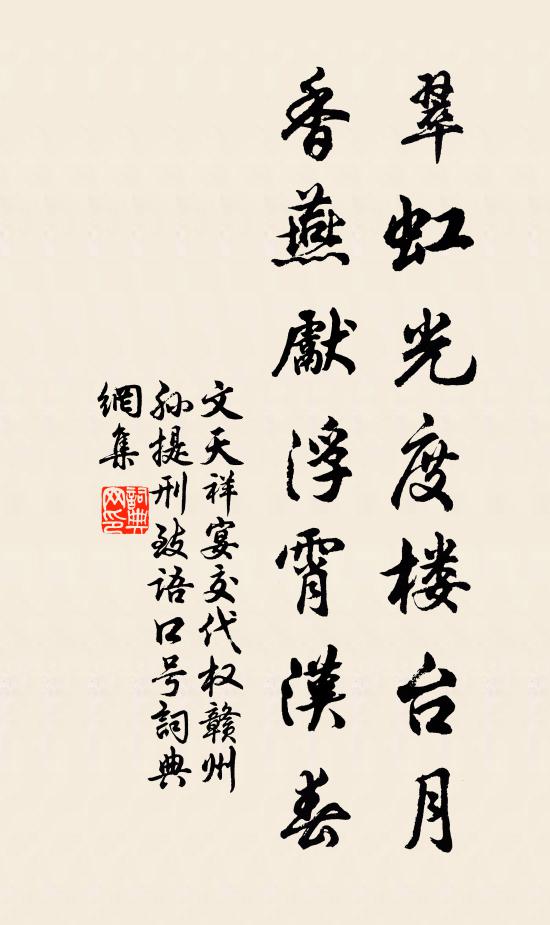 翠虹光度楼台月
香燕獻浮霄漢春
文天祥宴交代权赣州
孙提刑致语口号詞典
網集
詞典
网印